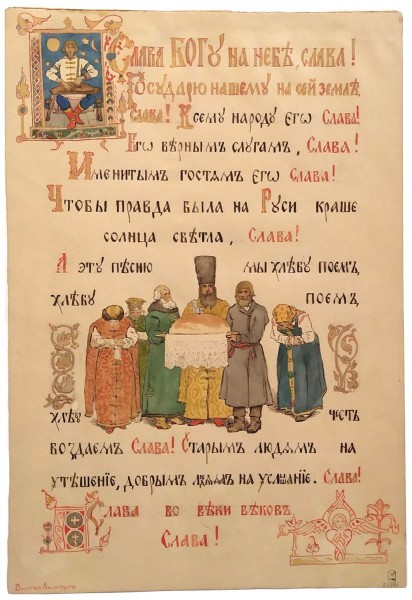 Слава Богу на небѣ, слава!
Государю нашему на сей землѣ
Слава! Всему народу его Слава!
Его вѣрнымъ слугамъ, Слава!
Именитымъ гостямъ его Слава!
Чтобы правда была на Руси краше
солнца свѣтла, Слава!
А эту пѣсню мы хлѣбу поемъ,
хлѣбу поемъ,
хлѣбу честь
воздаемъ Слава! Старымъ людямъ на
утѣшенiе, добрымъ людямъ на услышанiе. Слава!
Слава во вѣки вѣковъ
Слава!
Викторъ Васнецовъ